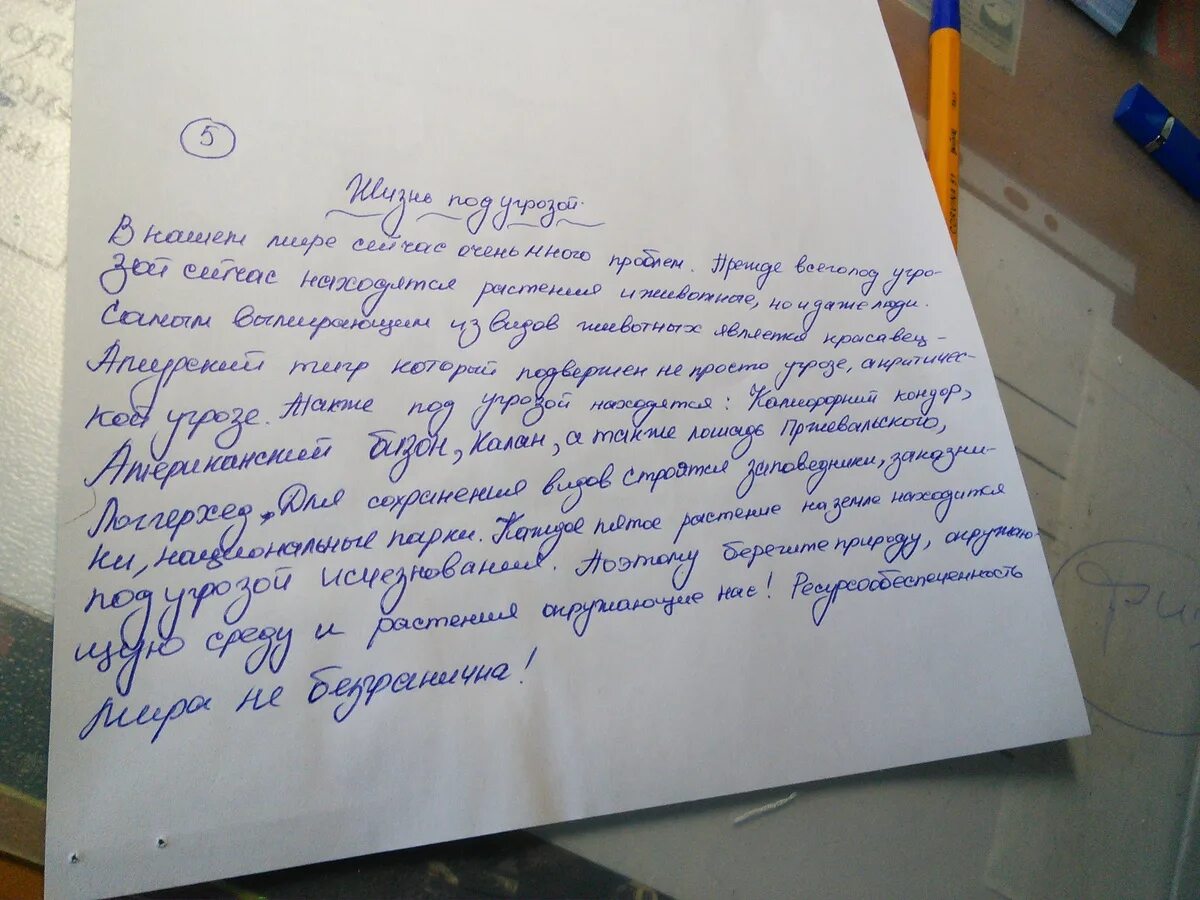 5
Жизнь под угрозой.
В нашем мире сейчас очень много проблем. Прежде всего под угро-
зой сейчас находятся растения и животные, но и даже люди.
Самым вымирающим из видов животных является красавец -
Амурский тигр который подвержен не просто угрозе, а критичес-
кой угрозе. Также под угрозой находятся: Калифорний кондор,
Американский бизон, Калан, а также лошадь Пржевальского,
Логгерхед. Для сохранения видов строятся заповедники, заказни-
ки, национальные парки. Каждое пятое растение на земле находится
под угрозой исчезнования. Поэтому берегите природу, окружаю-
щую среду и растения окружающие нас! Ресурсообеспеченность
мира не безгранична!
CORVINA 51